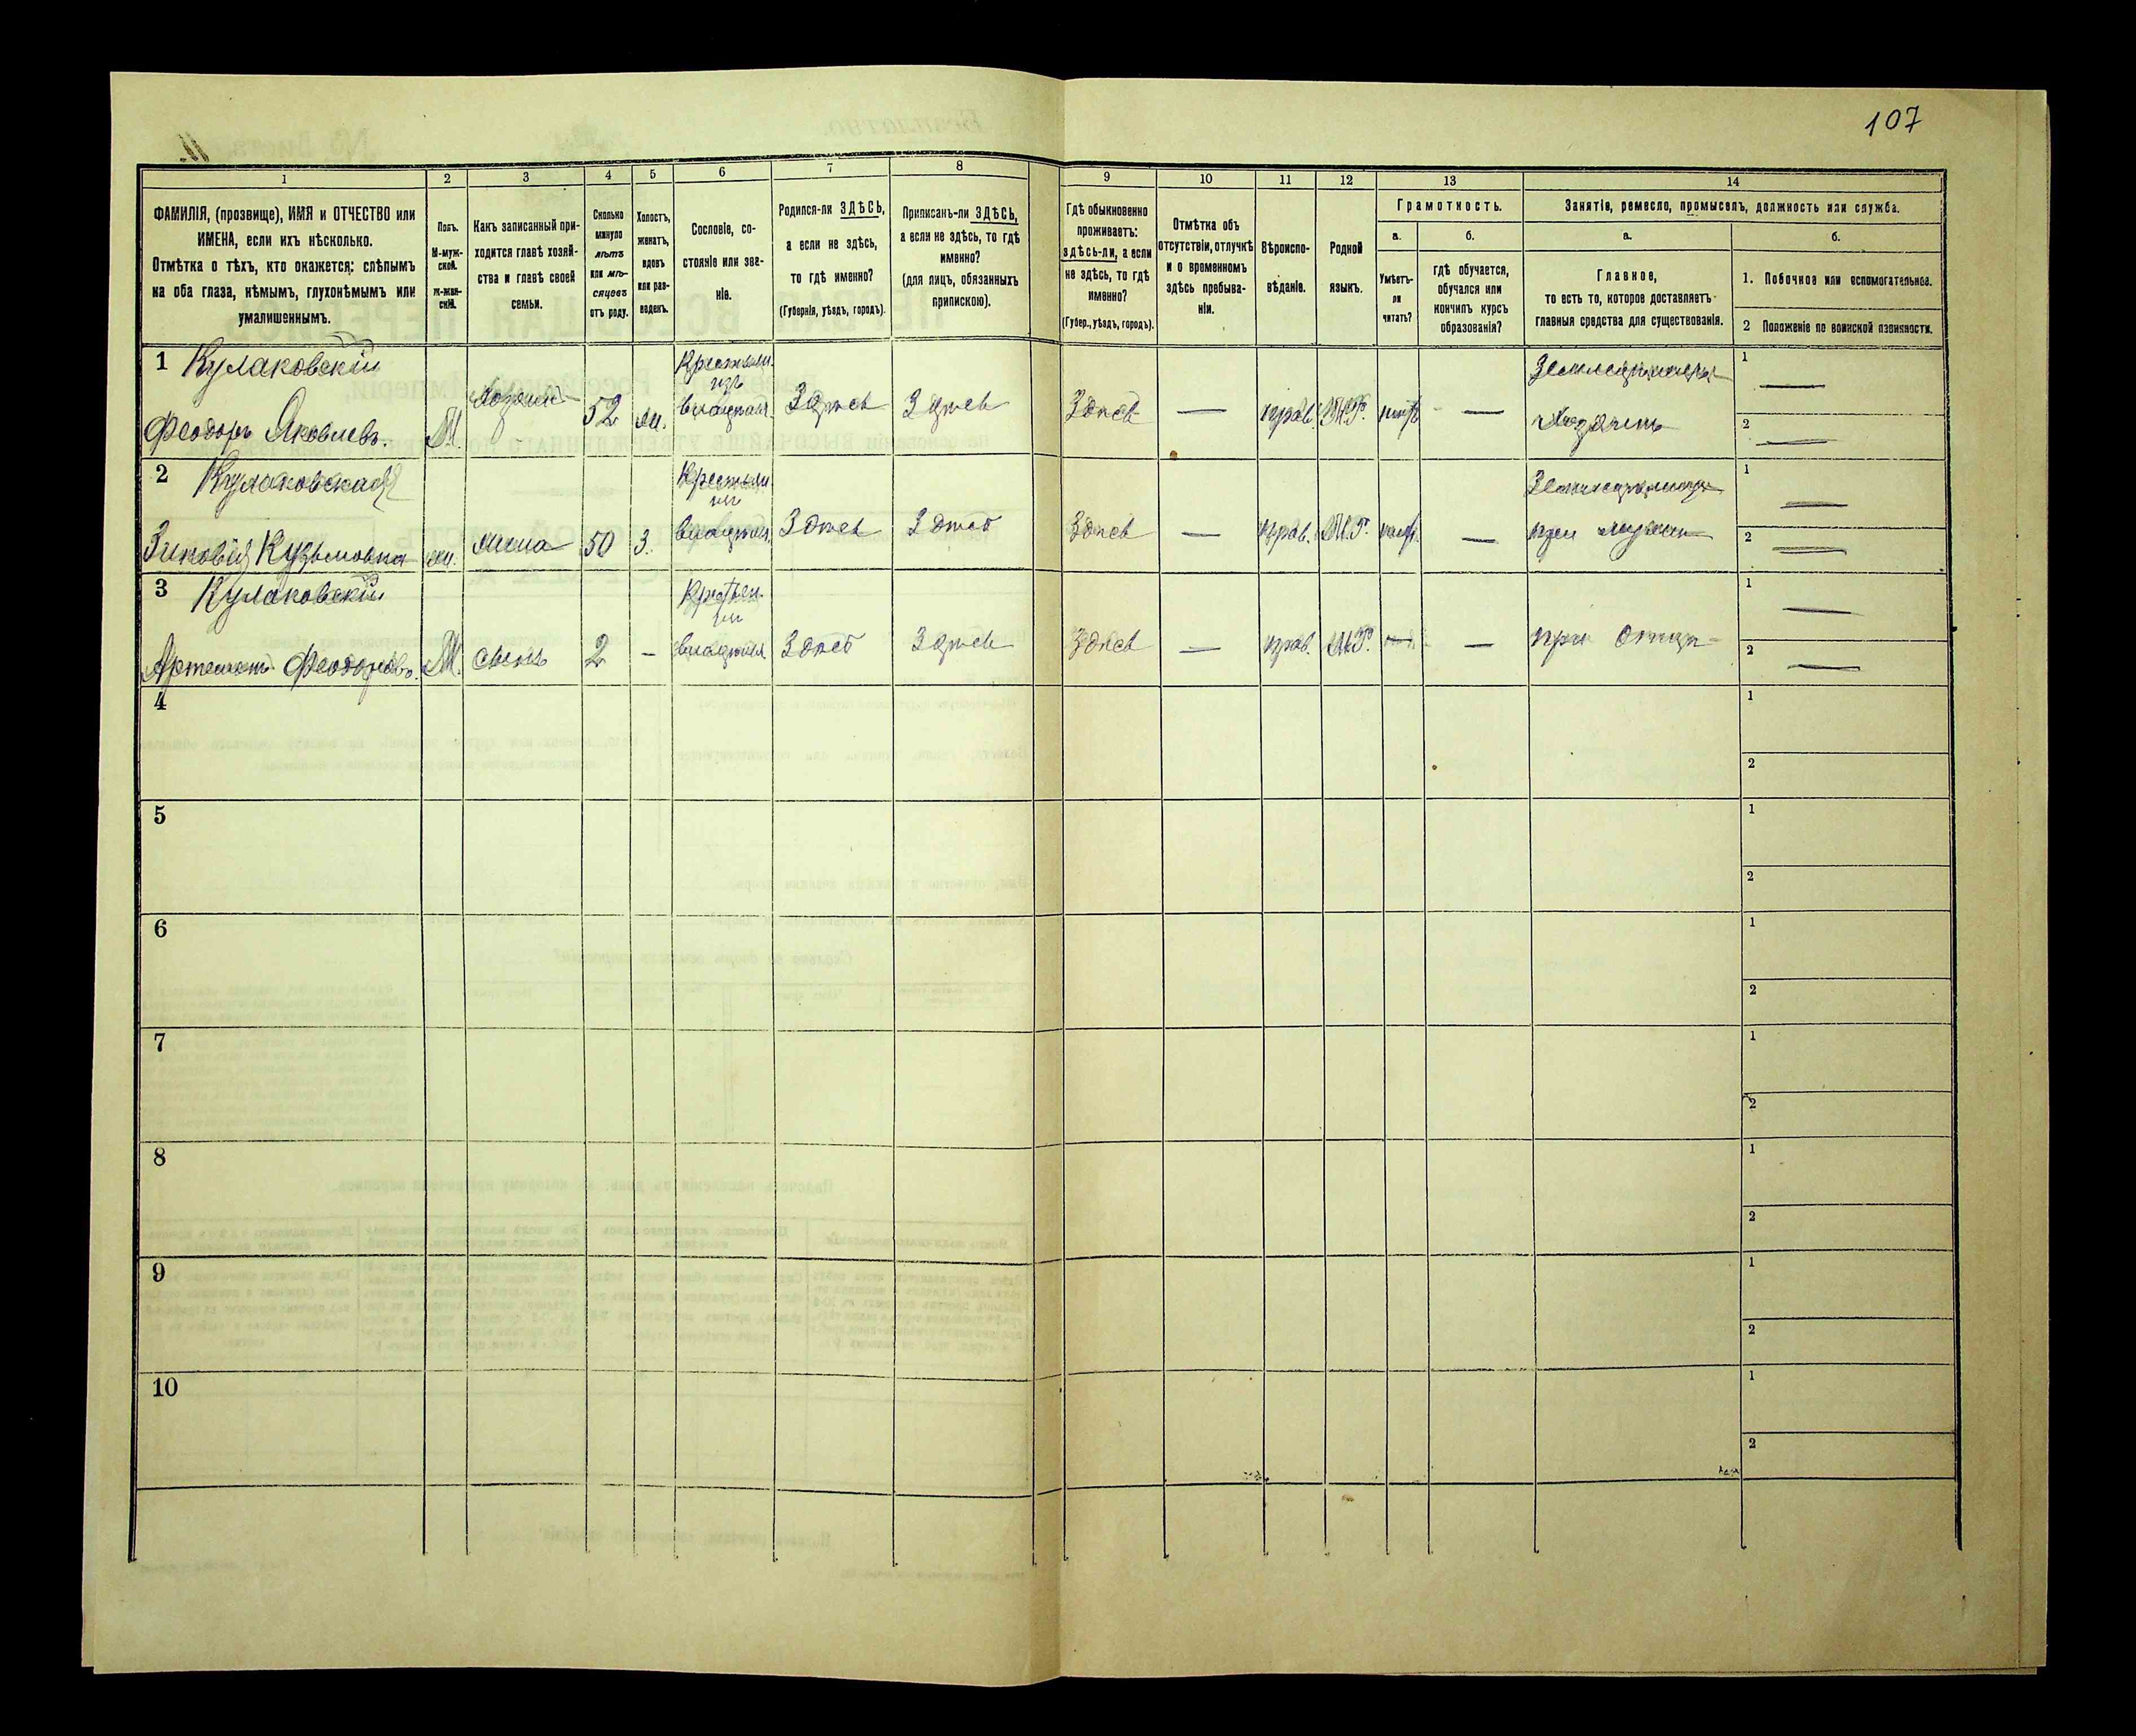 107
1
2
3
4
5
6
7
8
9
10
11
12
13
14
ФАМИЛІЯ, (прозвище), ИМЯ и ОТЧЕСТВО или
ИМЕНА, если ихъ нѣсколько.
Отмѣтка о тѣхъ, кто окажется: слѣпымъ
на оба глаза, нѣмымъ, глухонѣмымъ или
умалишеннымъ.
Полъ.
М-муж-
ской.
Ж-жен-
скій.
Какъ записанный при-
ходится главѣ хозяй-
ства и главѣ своей
семьи.
Сколько
минуло
лѣтъ
или мѣ-
сяцевъ
отъ роду.
Холостъ,
женатъ,
вдовъ
или раз-
веденъ.
Сословіе, со-
стояніе или зва-
ніе.
Родился-ли ЗДѢСЬ,
а если не здѣсь,
то гдѣ именно?
(Губернія, уѣздъ, городъ).
Приписанъ-ли ЗДѢСЬ,
а если не здѣсь, то гдѣ
именно?
(для лицъ, обязанныхъ
припискою).
Гдѣ обыкновенно
проживаетъ:
здѣсь-ли, а если
не здѣсь, то гдѣ
именно?
(Губер., уѣздъ, городъ).
Отмѣтка объ
отсутствіи, отлучкѣ
и о временномъ
здѣсь пребыва-
ніи.
Вѣроиспо-
вѣданіе.
Родной
языкъ.
Грамотность.
а.
Умѣетъ-
ли
читать?
б.
гдѣ обучается,
обучался или
кончилъ курсъ
образованія?
Занятіе, ремесло, промыселъ, должность или служба.
а.
Главное,
то есть то, которое доставляетъ
главныя средства для существованія.
б.
1. Побочное или вспомогательное.
2 Положеніе по воинской повинности.
1 Кулаковскій
Феодоръ Яковлевъ.
М.
хозяинъ
52
ж.
Крестьян.
изъ
владѣльч.
Здѣсь
Здѣсь
Здѣсь
—
прав.
М.Р.
нѣтъ
—
Земледѣлецъ
хозяинъ
1 —
2 —
2 Кулаковская
Зиновія Кузьмовна
ж.
жена
50
З.
Крестьян.
изъ
владѣльч.
Здѣсь
Здѣсь
Здѣсь
—
прав.
М.Р.
нѣтъ
—
при мужѣ
1 —
2 —
3 Кулаковскій
Артемонъ Феодоровъ.
М.
сынъ
2
—
изъ
владѣльч.
Здѣсь
Здѣсь
Здѣсь
—
прав.
М.Р.
—
—
при отцѣ
1 —
2 —
4
1
2
5
1
2
6
1
2
7
1
2
8
1
2
9
1
2
10
1
2